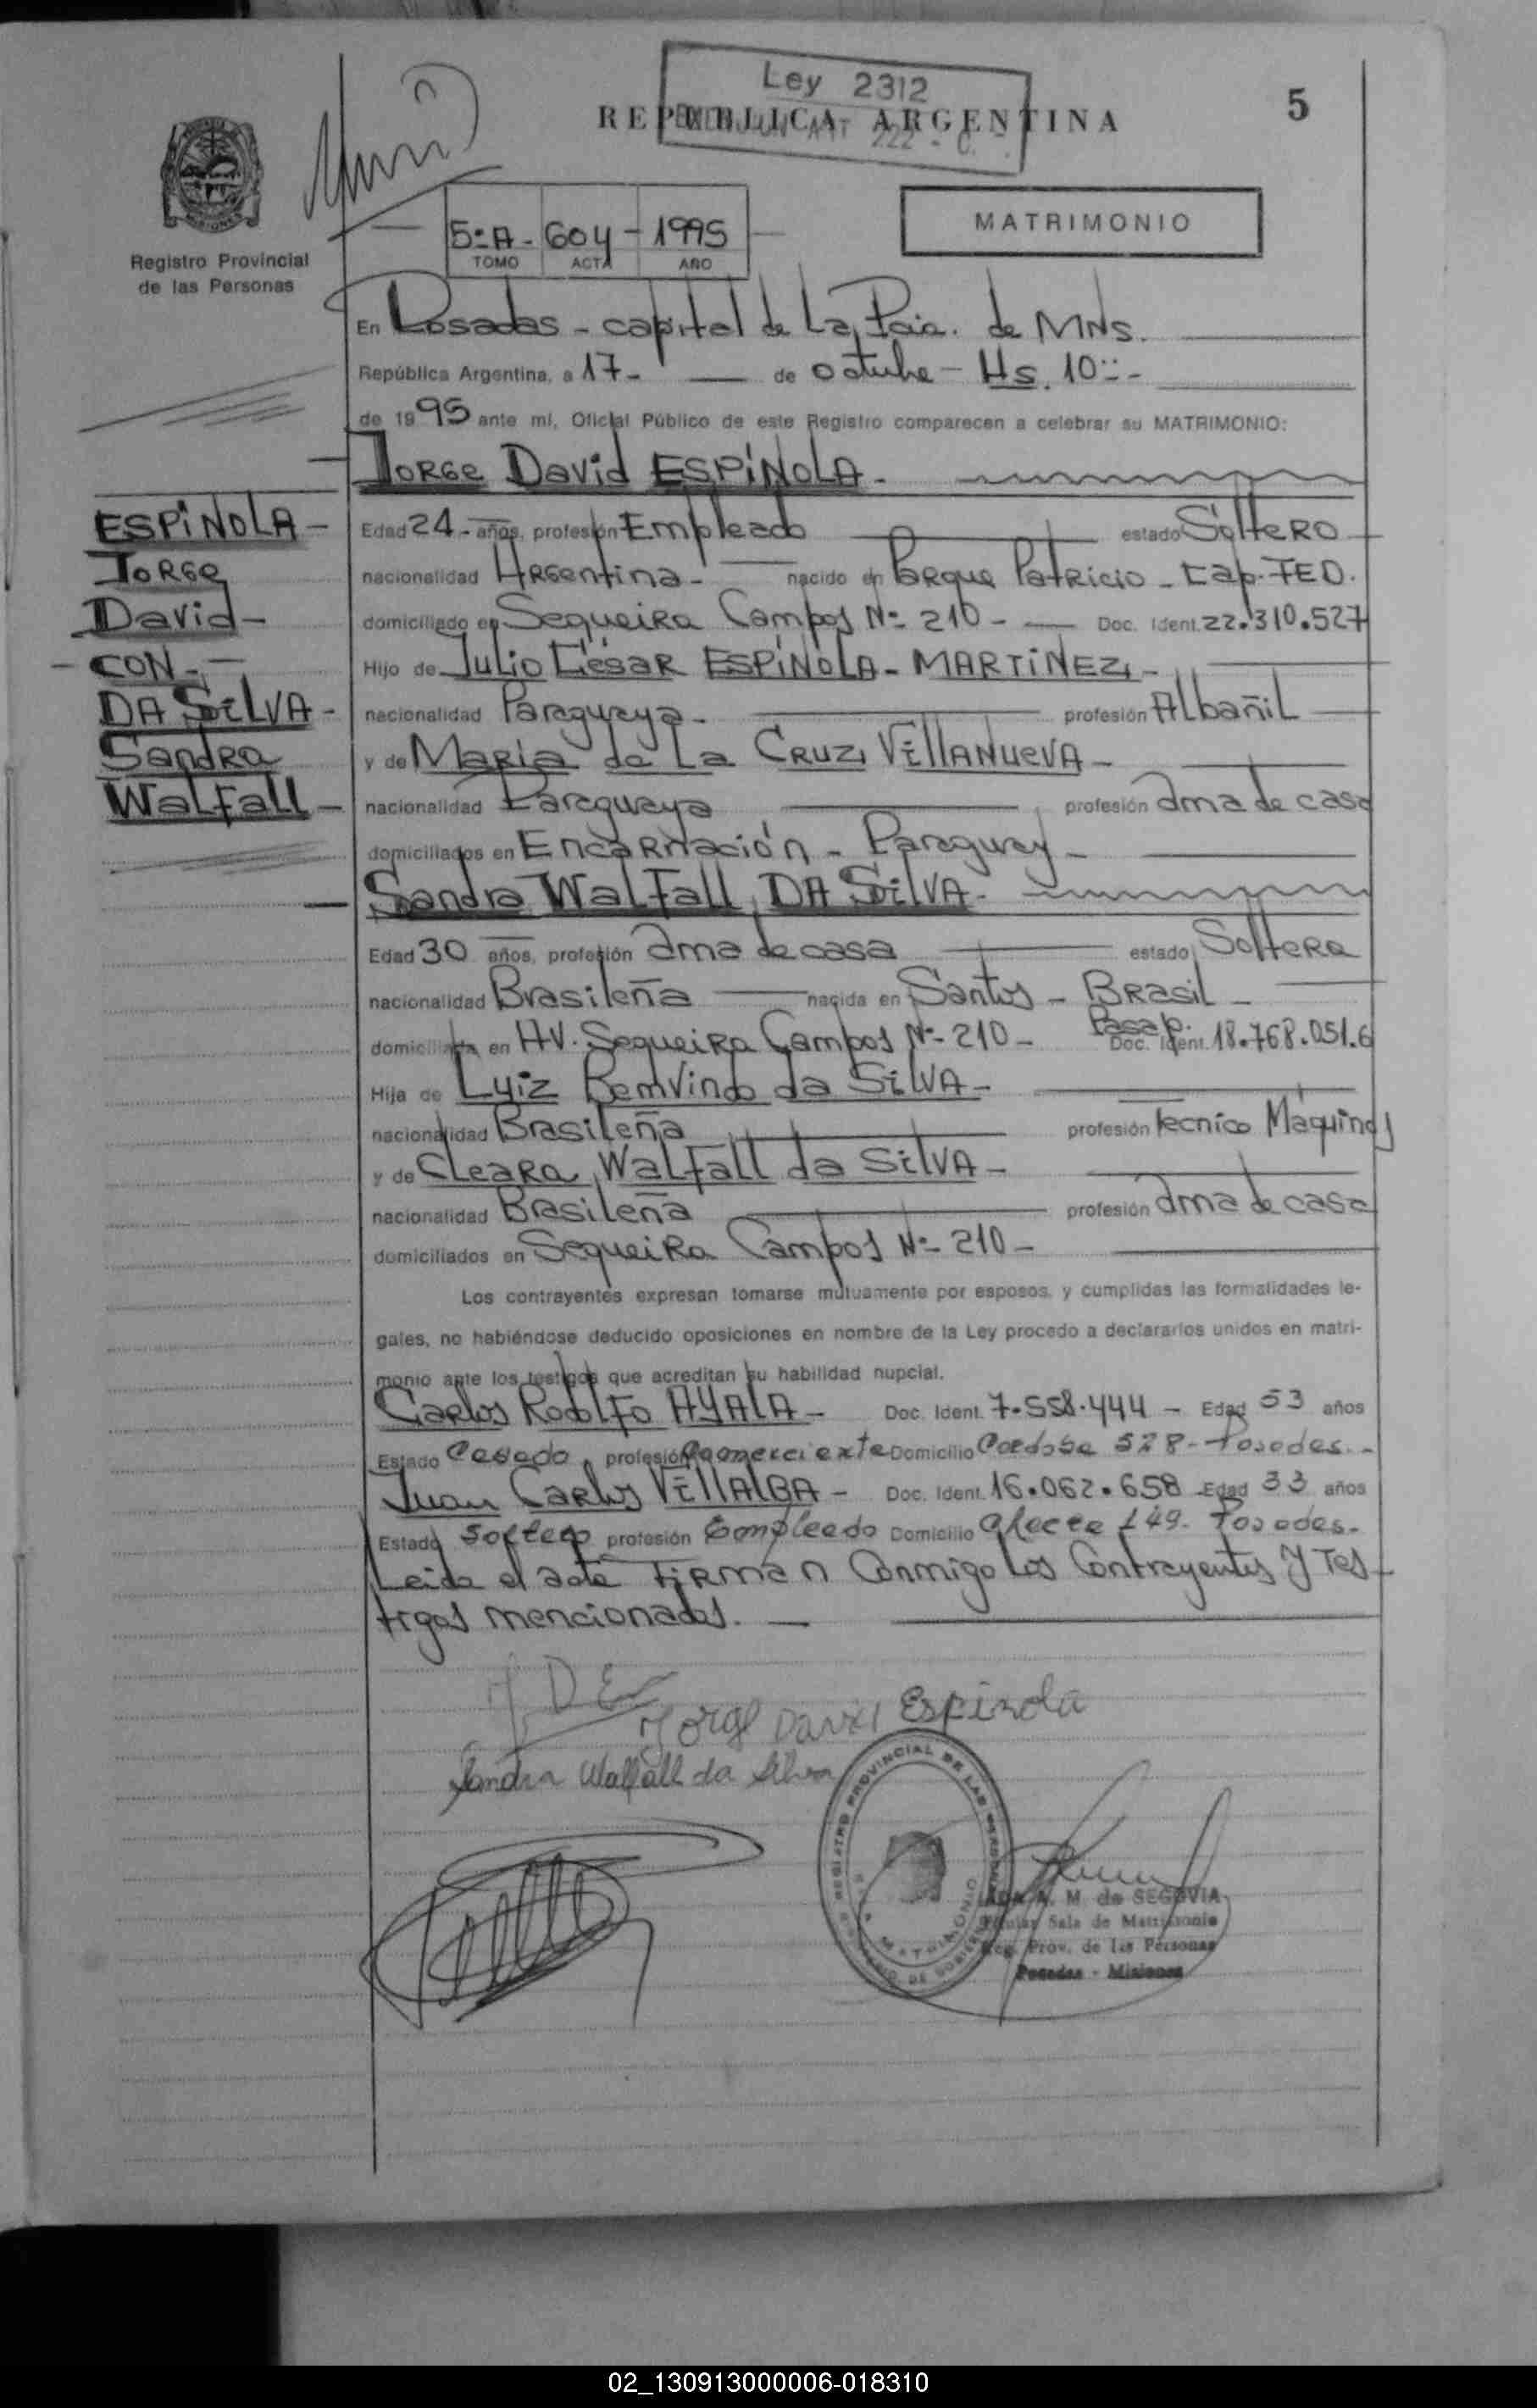 Ley 2312
REPUBLICA ARGENTINA
5
Registro Provincial
de las Personas
5º A - 604 - 1995
TOMO ACTA AÑO
MATRIMONIO
En Posadas - capital de La Pcia. de MNS.
República Argentina, a 17 - de octubre - Hs. 10:: -
de 1995 ante mí, Oficial Público de este Registro comparecen a celebrar su MATRIMONIO:
Jorge David ESPINOLA -
ESPINOLA -
Jorge
David -
- CON -
DA SILVA -
Sandra
Walfall -
Edad 24 - años, profesión Empleado estado Soltero
nacionalidad Argentina - nacido en Parque Patricio - Cap. FED.
domiciliado en Sequeira Campos Nº 210 - Doc. Ident. 22.310.527
Hijo de Julio César ESPINOLA - MARTINEZ -
nacionalidad Paraguaya - profesión Albañil
y de María de La CRUZ VILLANUEVA -
nacionalidad Paraguaya profesión ama de casa
domiciliados en Encarnación - Paraguay -
Sandra Walfall DA SILVA -
Edad 30 años, profesión ama de casa estado Soltera
nacionalidad Brasileña nacida en Santos - Brasil -
domiciliada en AV. Sequeira Campos Nº 210 - Pasap. Doc. Ident. 18.768.051.6
Hija de Luiz Bemvindo da SILVA -
nacionalidad Brasileña profesión Tecnico Máquinas
y de Cleara Walfall da SILVA -
nacionalidad Brasileña profesión ama de casa
domiciliados en Sequeira Campos Nº 210 -
Los contrayentes expresan tomarse mutuamente por esposos, y cumplidas las formalidades le-
gales, no habiéndose deducido oposiciones en nombre de la Ley procedo a declararlos unidos en matri-
monio ante los testigos que acreditan su habilidad nupcial.
Carlos Rodolfo AYALA - Doc. Ident. 7.558.444 - Edad 53 años
Estado Casado profesión Comerciante Domicilio Cordoba 528 - Posadas. -
Juan Carlos VILLALBA - Doc. Ident. 16.062.658 Edad 33 años
Estado Soltero profesión Empleado Domicilio 149 - Posadas. -
Leida el acta FIRMAN Conmigo Los Contrayentes y Tes-
tigos mencionados. -
JDE
Jorge David Espinola
Sandra Walfall da Silva
REGISTRO PROVINCIAL DE LAS PERSONAS
MATRIMONIO
A. M. de SEGOVIA
Titular Sala de Matrimonio
Reg. Prov. de las Personas
Posadas - Misiones
02_130913000006-018310